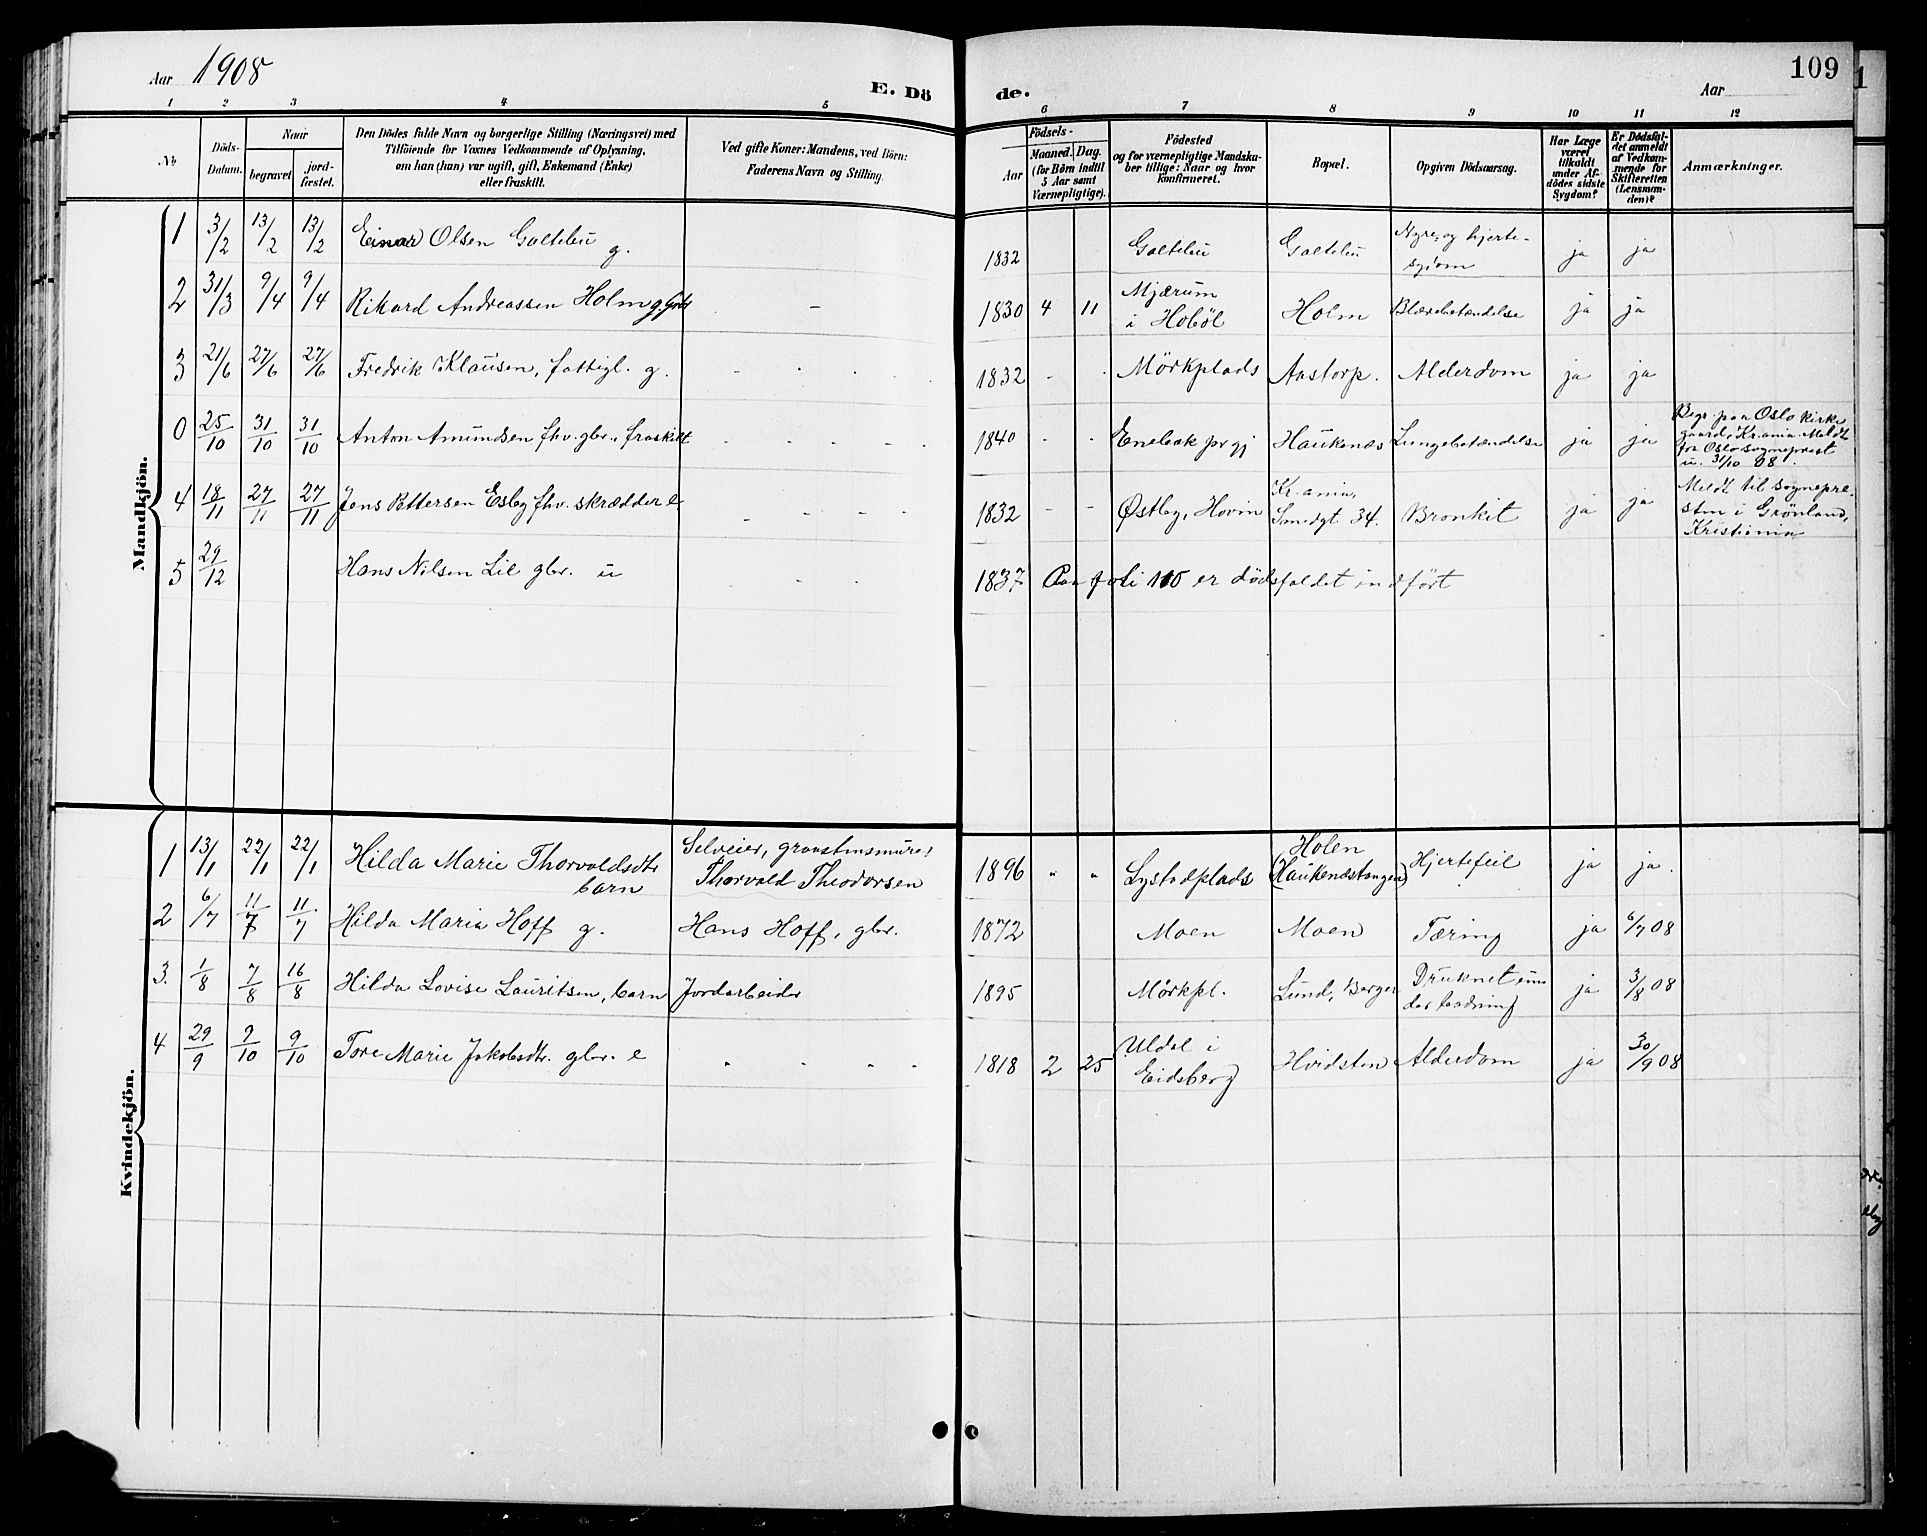 Aar 1908
E. Dö
de.
Aar
109
1 2 3 4 5 6 7 8 9 10 11 12
No
Döds-Datum.
Naar
begravet
jord-fæstet.
Den Dödes fulde Navn og borgerlige Stilling (Næringsvei) med
Tilföiende for Voxnes Vedkommende af Oplysning,
om han (han) var ugift, gift, Enkemand (Enke)
eller fraskilt.
Ved gifte Koner: Mandens, ved Börn:
Faderens Navn og Stilling.
Födsels-
Aar
Maaned. Dag.
(for Börn indtil
5 Aar samt
Værnepligtige).
Födested
og for værnepligtige Mandska-
ber tillige: Naar og hvor
konfirmeret.
Bopæl.
Opgiven Dödsaarsag.
Har Læge
været
tilkaldt
under Af-
dödes sidste
Sygdom?
Er Dödsfal-
det anmeldt
af Vedkom-
mende for
Skifteretten
(Lensman-
den)?
Anmærkninger.
Mandkjön.
1 3/2 13/2 13/2 Einar Olsen Galteleu g. 1832 Galteleu Galteleu Nyre- og hjerte-
sydom ja ja
2 31/3 9/4 9/4 Rikard Andreassen Holm g. – 1830 4 11 Mjærum
i Hobøl Holm Blærebetændelse ja ja
3 21/6 27/6 27/6 Fredrik Klausen, fattigl. g. 1832 - Mörkplads Aastorp. Alderdom ja ja
0 25/10 31/10 31/10 Anton Amundsen fhv. gbr., fraskilt 1840 - - Enebak prgj Haukenæs Lungebetændelse ja ja Begr. paa Oslo kirke
gaard, Kr.ania. Meldt
fra Oslo sogneprest
u. 31/10 08.
4 18/11 27/11 27/11 Jens Pettersen Esby fhv. skrædder e 1832 - - Østby, Hovin Kr.ania,
Smedgt 34. Bronkit ja ja Meldt til sognepre-
sten i Grönland,
Kristiania
5 29/12 Hans Nilsen Lie gbr. u 1837 Paa foli 110 er dödsfaldet indført
Kvindekjön.
1 13/1 22/1 22/1 Hilda Marie Thorvaldsdtr
barn Selveier, graastensmurer
Thorvald Theodorsen 1896 " " Lystadplads Holen
(Haukenæstangen) Hjertefeil ja ja.
2 6/7 11/7 11/7 Hilda Maria Hoff g. Hans Hoff, gbr. 1872 Moen Moen Tæring ja 6/7 08
3. 1/8 7/8 16/8 Hilda Lovise Lauritsen, barn Jordarbeider 1895 Mörkpl. Lund, Berger Druknet un
der badning ja 3/8 08
4 29/9 9/10 9/10 Tore Marie Jakobsdtr. gbr. e 1818 2 25 Uldal i
Eidsberg Hvidsten Alderdom ja 30/9 08